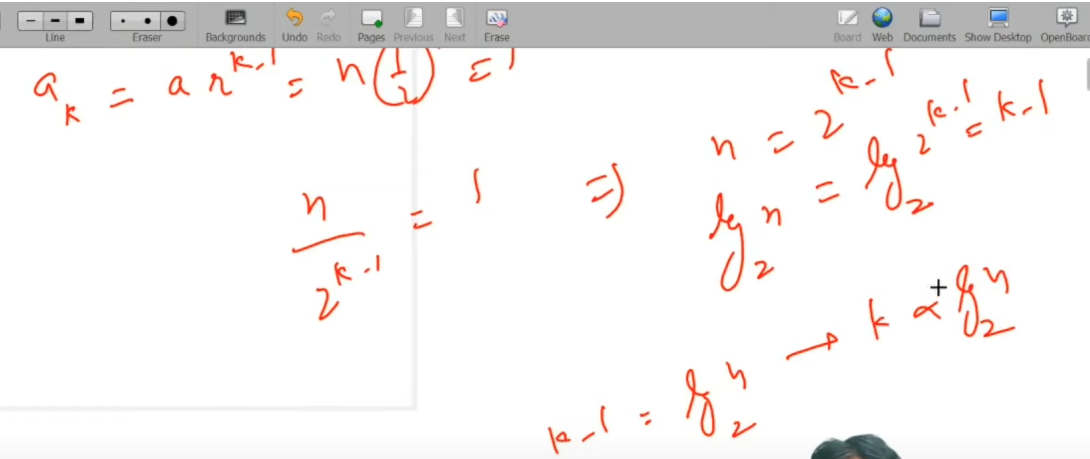 Line Eraser Backgrounds Undo Redo Pages Previous Next Erase Board Web Documents Show Desktop OpenBoar
a_k = a r^{k-1} = n(1/2) = 1
n = 2^{k-1}
n / 2^{k-1} = 1 ⇒ lg_2 n = lg_2 2^{k-1} = k-1
k-1 = lg_2 n → k ∝ lg_2 n